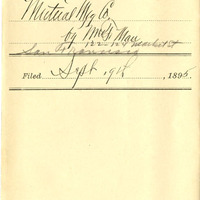 Mutual Mfg Co.
by
Market St
San Francisco
Filed Sept 9th, 1895